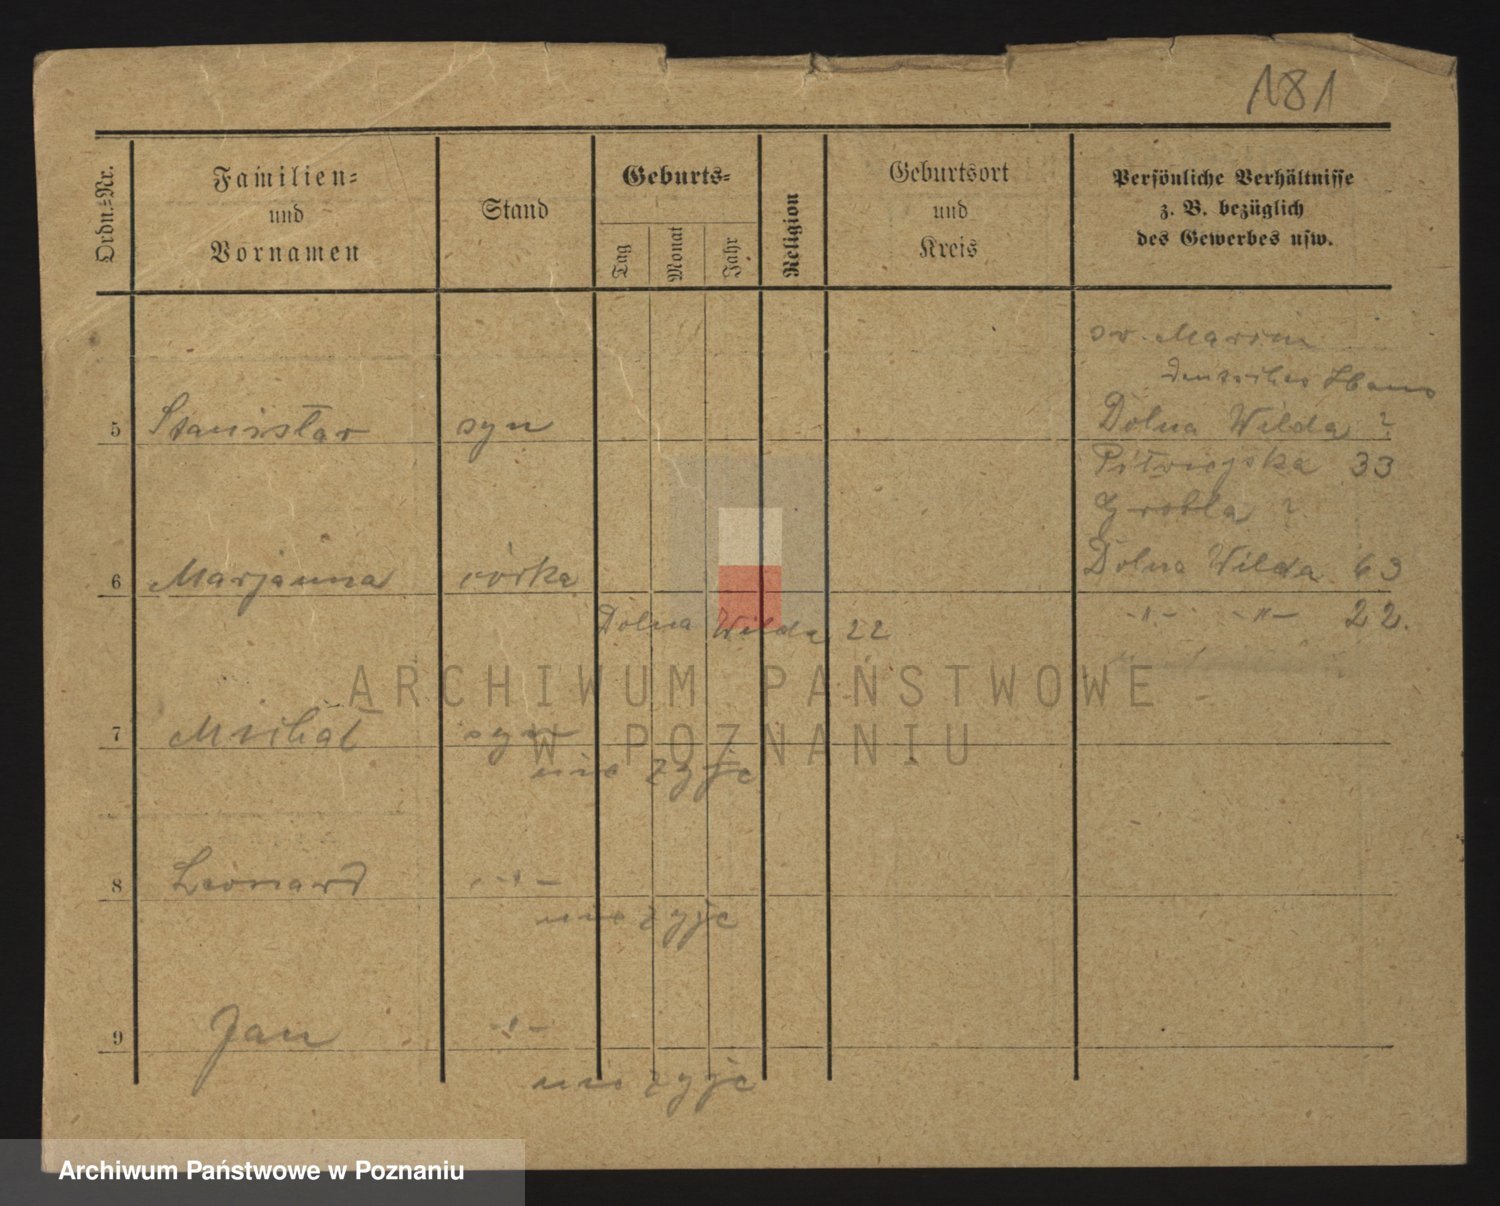 181
Ordn.=Nr.
Familien=
und
Vornamen
Stand
Geburts=
Tag
Monat
Jahr
Religion
Geburtsort
und
Kreis
Persönliche Verhältnisse
z. B. bezüglich
des Gewerbes usw.
św. Marcin
5 Stanisław syn Dolna Wilda ?
33
Grobla ?
6 Marjanna córka Dolna Wilda 63
Dolna Wilda 22
-"- -"- 22.
ARCHIWUM PAŃSTWOWE
W POZNANIU
7 Michał syn
nie żyje
8 Leonard -"-
nie żyje
9 Jan -"-
nie żyje
Archiwum Państwowe w Poznaniu